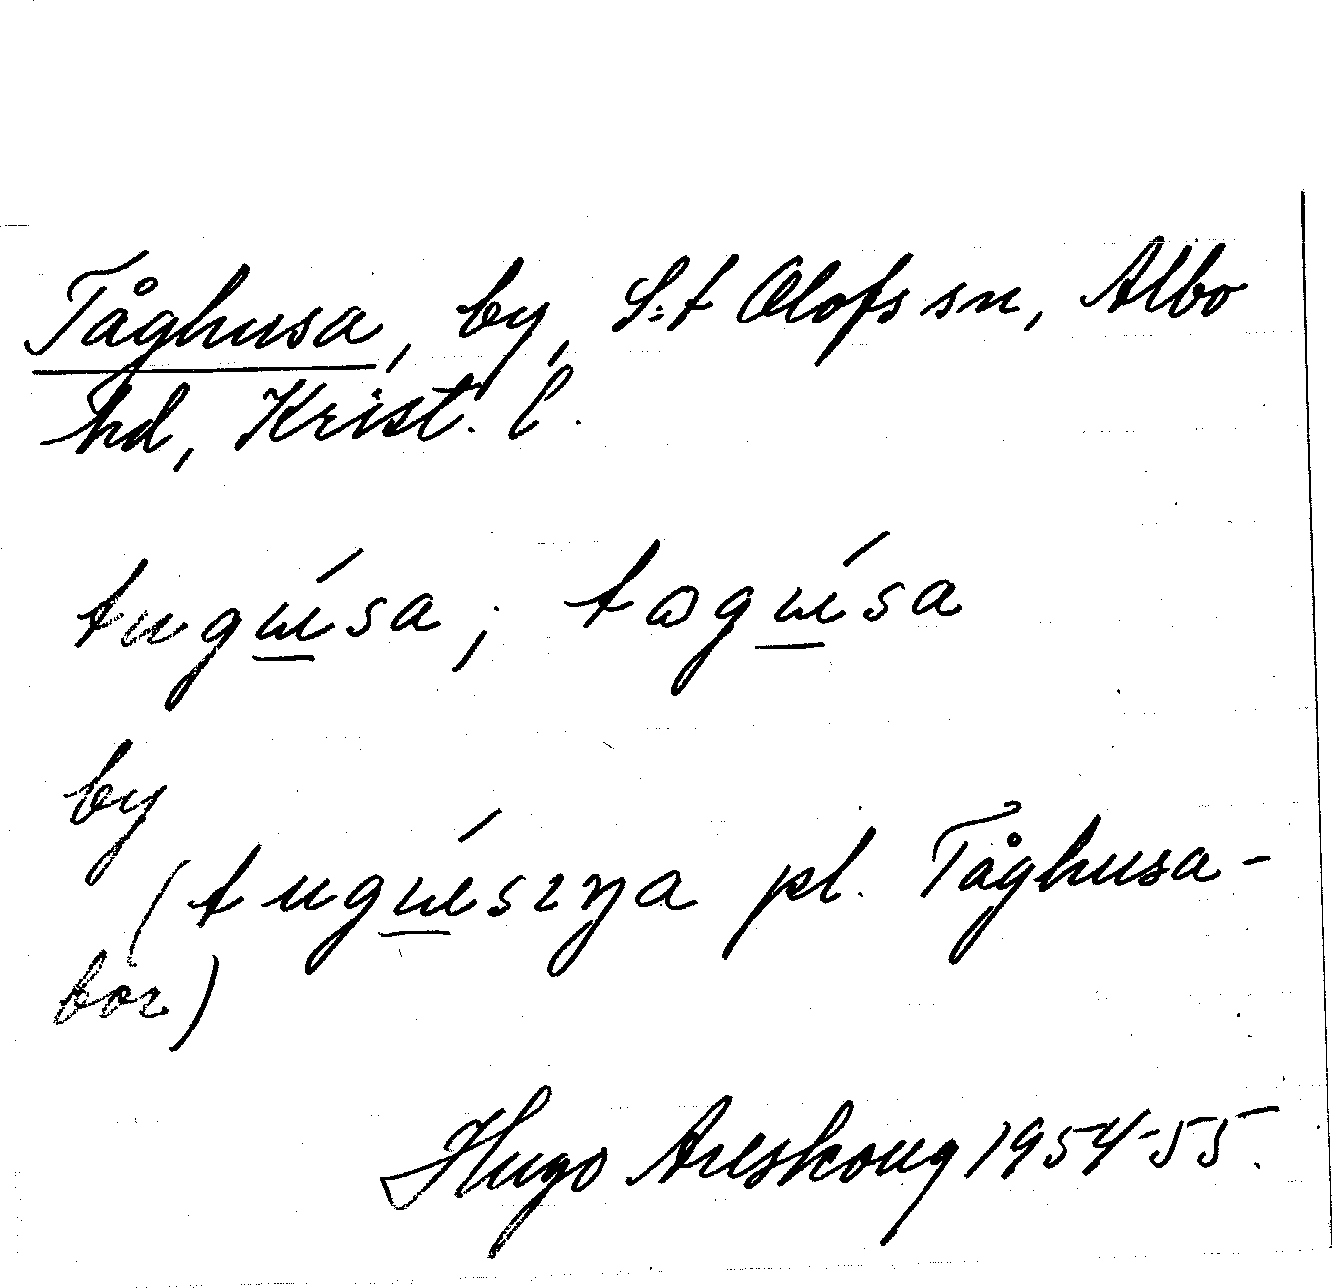 Tåghusa, by, S:t Olofs sn, Albo
hd, Krist. l.
tugú̲sa; tɷgú̲sa
by
(tugú̲sɪŋa pl. Tåghusa-
bor)
Hugo Areskoug 1954-55.